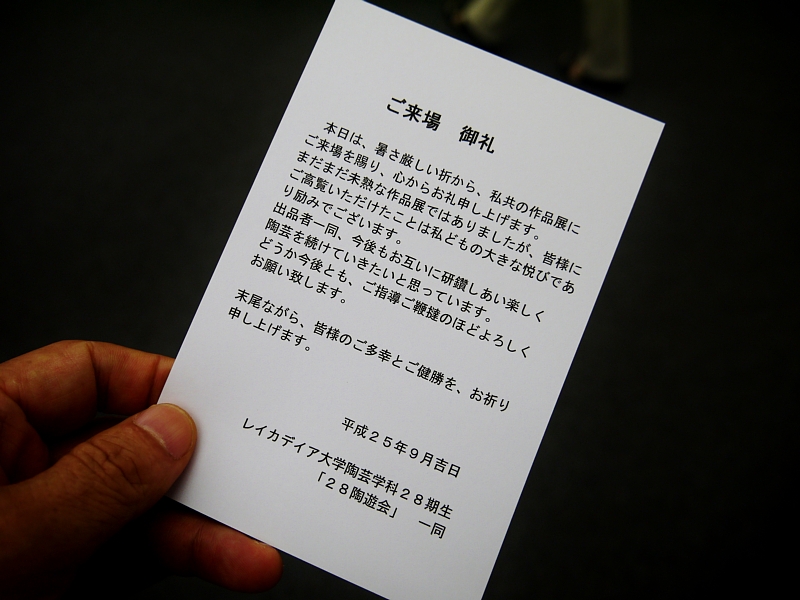 ご来場　御礼
本日は、暑さ厳しい折から、私共の作品展に
ご来場を賜り、心からお礼申し上げます。
まだまだ未熟な作品展ではありましたが、皆様に
ご高覧いただけたことは私どもの大きな悦びであ
り励みでございます。
出品者一同、今後もお互いに研鑽しあい楽しく
陶芸を続けていきたいと思っています。
どうか今後とも、ご指導ご鞭撻のほどよろしく
お願い致します。
末尾ながら、皆様のご多幸とご健勝を、お祈り
申し上げます。
平成２５年９月吉日
レイカディア大学陶芸学科２８期生
「２８陶遊会」　一同